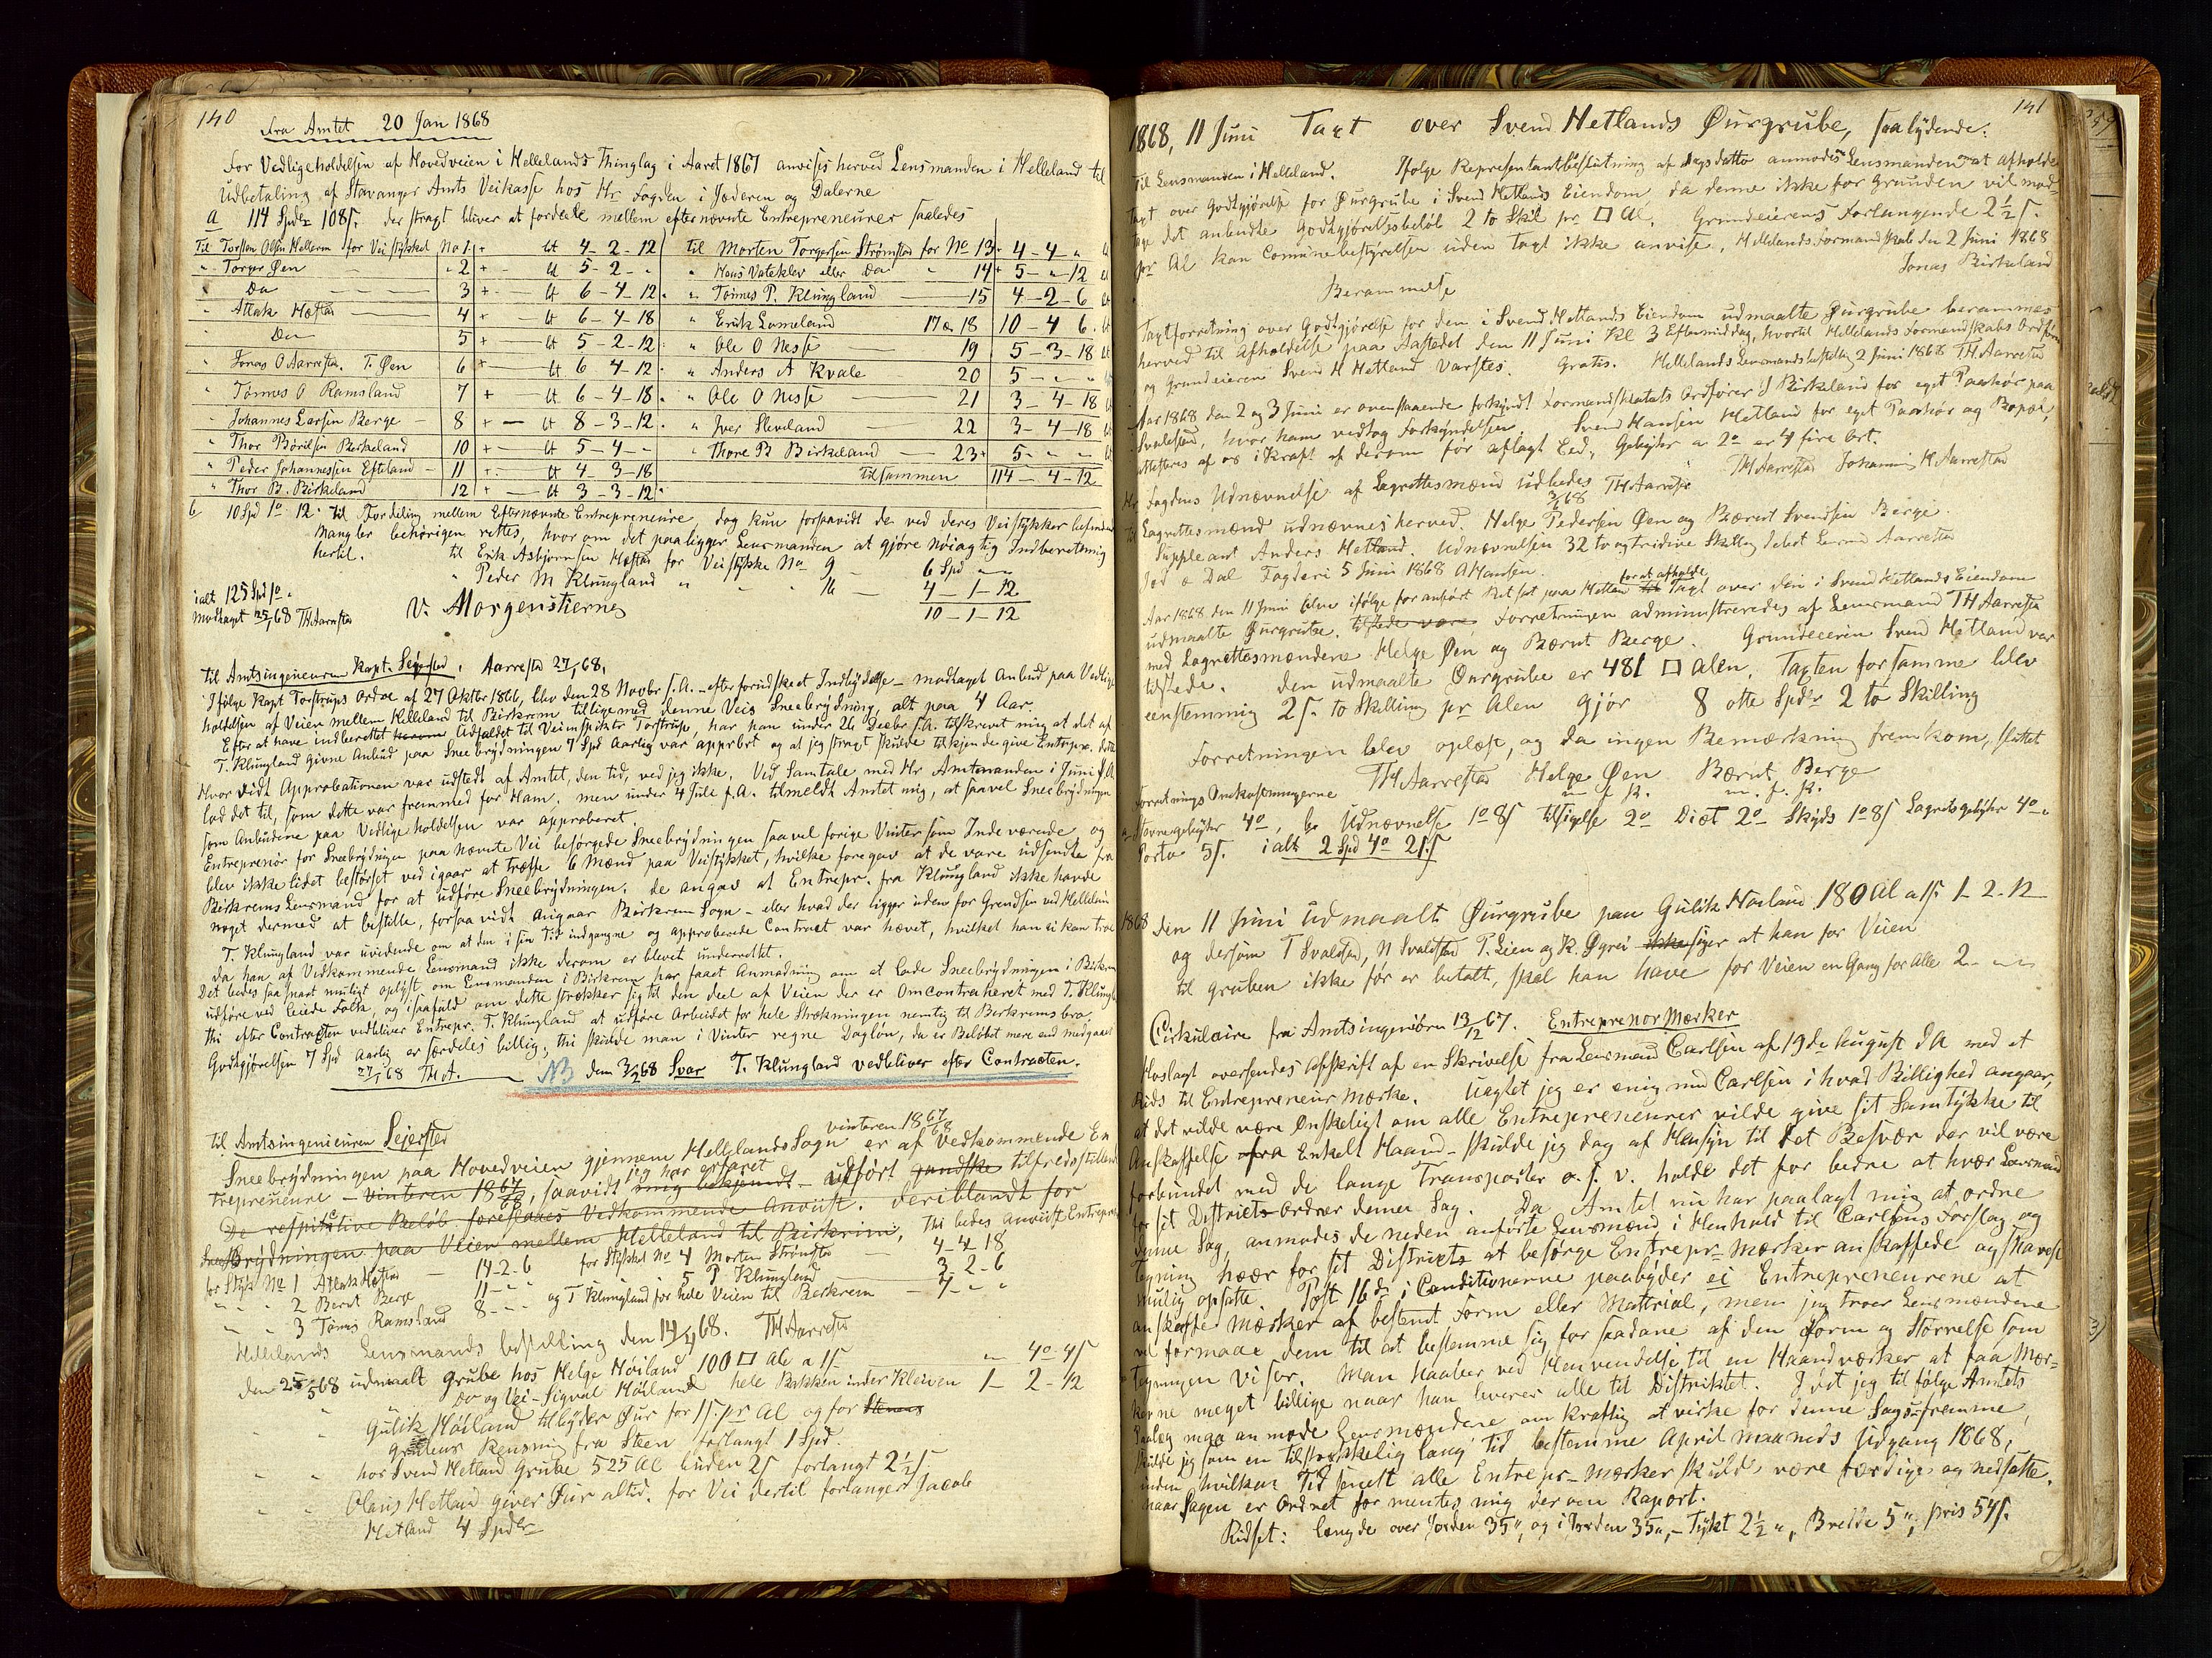 140
Fra Amtet 20 Jan 1868
For Vedligeholdelsen af Hovedveien i Hellelands Thinglag i Aaret 1867 anvises herved Lensmanden i Helleland til
Udbetaling af Stavanger Amts Veikasse hos Hr. Fogden i Jæderen og Dalerne
a 114 Spdr 108ſ. der stragt bliver at fordeele mellem efternævnte Entrepreneurer saaledes
Til Torsten Olsen Hellern for Veistykket No 1 + 4-2-12
" Torger Øen " 2 + 5-2-"
" Do 3 + 6-4-12
" Atlak Hæstad 4 + 6-4-18
" Do 5 + 5-2-12
" Jonas O Aarrestad. T. Øen 6 + 6 4-12
" Tønnes O Ramsland 7 + 6-4-18
" Johannes Larsen Berge 8 + 8-3-12
" Thor Børilsen Birkeland 10 + 5-4-"
" Peder Johannessen Efteland 11 + 4-3-18
" Thor B. Birkeland 12 + 3-3-12
til Morten Torgersen Strømstad for No 13 + 4-4-"
" Hans Vateklev eller Do " 14 + 5-"-12
" Tønnes P. Klungland 15 4-2-6
" Erik Lomeland 17 & 18 10-4 6
" Ole O Nesse 19 5-3-18
" Anders A Kvale 20 5 - " - "
" Ole O Nesse 21 3-4-18
" Iver Sleveland 22 3-4-18
" Thore B Birkeland 23 + 5 - " - "
Tilsammen 114-4-12
b 10 Spd 1o 12 Til Fordeling mellem Efternævnte Entrepreneure, dog kun forsaavidt de ved deres Veistykker befundne
Mangler behørigen rettes, hvorom det paaligger Lensmanden at gjøre nøiagtig Indberetning
hertil. til Erik Asbjørnsen Hæstad for Veistykke No 9 6 Spd " "
" Peder M Klungland " " 16 4-1-12
10-1-12
ialt 125 Spd 1o "
Modtaget 25/1 68 TH Aarrestad V. Morgenstierne
Til Amtsingenieuren Kapt. Sejersted. Aarrestad 27/1 68.
Ifølge Kapt Torstrups Ordre af 27 Oktbr 1866, blev den 28 Novbr s.A. efter forudskeet Indbydelse modtaget Anbud paa Vedlige
holdelsen af Veien mellem Helleland til Birkrem tilligemed denne Veis Sneebrydning, alt paa 4 Aar.
Efter at have indberettet Udfaldet til Veiinspiktr Torstrup, har han under 26 Decbr s.A. tilskrevet mig at det af
T. Klungland givne Anbud paa Sneebrydningen 7 Spd Aarlig var approbert og at jeg stragt skulde tilkjende give Entrepr. dette
Hvorvidt Approbationen var udstedt af Amtet, den tid, ved jeg ikke. Ved Samtale med Hr Amtmanden i Juni f.A
lod det til, som dette var fremmed for Ham. men under 4 Jule f.A. tilmeldte Amtet mig, at saavel Sneebrydningen
som Anbudene paa Vedligeholdelsen var approberet.
Entreprenør for Sneebrydningen paa nævnte Vei besørgede Sneebrydningen saavel forige Vinter som Indeværende og
blev ikke lidet bestørtset ved igaar at træffe 6 Mænd paa Veistykket, hvilke foregav at de vare udsendte fra
Birkrems Lensmand for at udføre Sneebrydningen. de angav at Entrepr. fra Klungland ikke havde
noget dermed at bestille, forsaavidt angaar Birkrem Sogn - eller hvad der ligger uden for Grendsen ved Helleland
T. Klungland var uvidende om at den i sin Tid indgangne og approberede Contract var hævet, hvilket han ei kan troe
da han af Vedkommende Lensmand ikke derom er blevet underrettet.
Det bedes saa snart muligt oplyst om Lensmanden i Birkrem har faaet Anmodning om at lade Sneebrydningen i Birkrem
udføre ved leiede Folk, og isaafald om dette strækker sig til den deel af Veien der er Omcontraheret med T. Klungland
thi efter Contracten vedbliver Entrepr. T. Klungland at udføre Arbeidet for hele Strækningen nemlig til Berkrems bro.
Godtgjørelsen 7 Spd aarlig er særdeles billig, thi skulde man i Vinter regne Dagløn, da er Beløbet mere end medgaaet
27/1 68 TH A. NB den 3/2 68 Svar T. Klungland vedbliver efter Contracten.
til Amtsingenieuren Sejersted
vinteren 1867/68
Sneebrydningen paa Hovedveien gjennem Hellelands Sogn er af Vedkommende En
jeg har erfaret
trepreneure - vinteren 1867/68, saavidt mig bekjendt - udført gandske tilfredsstillende
De respitutive Beløb foreslaaes Vedkommende Anviist. deriblandt for
Sneebrydningen paa Veien mellem Helleland til Birkrim, Thi bedes anviist Entrepren
for Styk No 1 Atlak Hæstad 14-2-6 for Stykket No 4 Morten Strømstad 4-4 18
" " " 2 Bernt Berge 11 - " - " 5 P Klungland 3-2-6
" " 3 Tønnes Ramsland 8 - " - " og T Klungland for hele Veien til Berkrem - 7 - " "
Hellelands Lensmands bestilling den 14/4 68. TH Aarrestad
den 25/5 68 udmaalt Grube hos Helge Høiland 100 □ Al a 1ſ " 4o-4ſ
" Do og Vei - Sigval Høiland hele Bakken under Kleiven 1-2-12
" " Gulik Høiland tilbyder Øur for 1ſ. pr Al og for Stenens
Grubens Rensning fra Steen forlangt 1 Spd.
" " hos Svend Hetland Grube 525 Al buden 2ſ forlangt 2½ſ.
" " Olaus Hetland giver Øur altid. for Vei dertil forlanger Jacob
Hetland 4 Spdlr
141
1868, 11 Juni Taxt over Svend Hetlands Øurgrube, saalydende:
Til Lensmanden i Helleland. Ifølge Representantbeslutning af Dags datto anmodes Lensmanden at afholde
Taxt over Godtgjørelse for Øurgrube i Svend Hetlands Eiendom, da denne ikke for Grunden vil mod-
tage det anbudte Godtgjørelsesbeløb 2 to Skil pr. □ Al. Grundeierens Forlangende 2½ſ.
pr Al kan Comunebestyrelsen uden Taxt ikke anvise. Hellelands Formandskab den 2 Juni 1868
Jonas Birkeland
Berammelse
Taxtforretning over Godtgjørelse for den i Svend Hetlands Eiendom udmaalte Øurgrube berammes
herved til Afholdelse paa Aastedet den 11 Juni Kl 3 Eftermiddag, hvortil Hellelands Formandskabs Ordfører
og Grundeieren Svend H Hetland Varsles. Gratis. Hellelands Lensmandsbestilling 2 Juni 1868 TH Aarrestad
Aar 1868 den 2 og 3 Juni er ovenstaaende forkyndt Formandskabets Ordfører J Birkeland for eget Paahør paa
Svalestad, hvor ham vedtog Forkyndelsen. Svend Hansen Hetland for eget Paahør og Bopæl,
attesteres af os i Kraft af derom før aflagt Eed, Gebyhr a 2o er 4 fire Ort.
TH Aarrestad Johannis H Aarrestad
Hr Fogdens Udnævnelse af Lagrettesmænd udbedes 3/6 68 TH Aarrestad
Til Lagrettesmænd udnævnes herved. Helge Pedersen Øen og Bærent Svendsen Berge.
Suppleant Anders Hetland. Udnævnelsen 32 to og tredive Skilling debet Lensmd Aarrestad
Jed & Dal Fogderi 5 Juni 1868 A Hansen.
for at afholde
Aar 1868 den 11 Juni blev ifølge foranført Ret sat paa Hetland til Taxt over den i Svend Hetlands Eiendom
udmaalte Øurgrube. tilstede vare. Forretningen administreredes af Lensmand TH Aarrestad
med Lagrettesmændene Helge Øen og Bærnt Berge. Grundeeieren Svend Hetland var
tilstede. Den udmaalte Øurgrube er 481 □ Alen. Taxten for samme blev
eenstemmig 2ſ. to Skilling pr Alen gjør 8 otte Spdr 2 to Skilling
Forretningen blev oplæst, og da ingen Bemærkning fremkom, sluttet
TH Aarrestad Helge Øen Bærnt Berge
m. f. P. m. f. P.
Forretnings Omkostningerne
Stevnegebyhr 4o, for Udnævnelse 1o 8ſ Tilsigelse 2o Diæt 2o Skyds 1o 8ſ Lagretsgebyhr 4o "
Porto 5ſ. ialt 2 Spd 4o 21ſ
1868 den 11 Juni udmaalt Øurgrube paa Gulik Høiland 180 Al a 1ſ 1-2-12
og dersom T Svalestad, N Svalestad P. Lien og K. Øgrei ikke siger at han for Veien
til gruben ikke før er betalt, skal han have for Veien en Gang for Alle 2 - " "
Cirkulaire fra Amtsingeniøren 13/12 67. Entreprenor Mærker
Hoslagt oversendes Afskrift af en Skrivelse fra Lensmand Carlsen af 19de August d A med et
Rids til Entrepreneur Mærke. Uagtet jeg er enig med Carlsen i hvad Billighed angaar,
at det vilde være Ønskeligt om alle Entrepreneurer vilde give sit Samtykke til
Anskaffelse fra Enkelt Haand - skulde jeg dog af Hensyn til det Besvær der vil være
forbundet med de lange Transporter o. s. v. holde det for bedre at hver Lensmand
for sit District Ordner denne Sag. Da Amtet nu har paalagt mig at ordne
denne Sag, anmodes de neden anførte Lensmænd i Henhold til Carlsens Forslag og
Tegning hvær for sit Districts at besørge Entrepr-Mærker anskaffede og snarest
mulig opsatte. Post 16de i Conditionerne paabyder ei Entrepreneurene at
anskaffe Mærker af bestemt Form eller Matrial, men jeg troer Lensmændene
vel formaae dem til at bestemme sig for saadane af den Form og Størrelse som
Tegningen viser. Man Haaber ved Henvendelse til en Haandværker at faa Mær-
kerne meget billige naar han leverer alle til Distriktet. Idet jeg til følge Amtets
Paalæg maa anmode Lensmændene om kraftig at virke for denne Sags fremme,
skulde jeg som en tilstrækkelig lang Tid bestemme April maaneds Udgang 1868,
inden hvilken Tid senest alle Entrepr-Mærker skulde være færdige og nedsatte.
naar Sagen er Ordnet formentes mig derom Raport.
Ridset: længde over Jorden 35", og i Jorden 35", - Tykt 2½", Bredde 5", pris 54ſ.